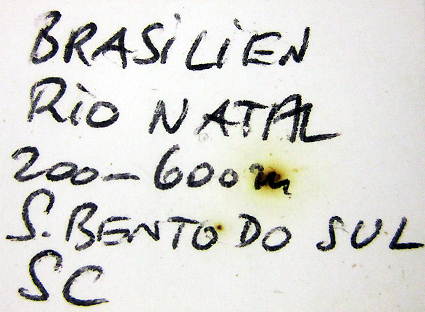 BRASILIEN
RIO NATAL
200-600m
S. BENTO DO SUL
SC